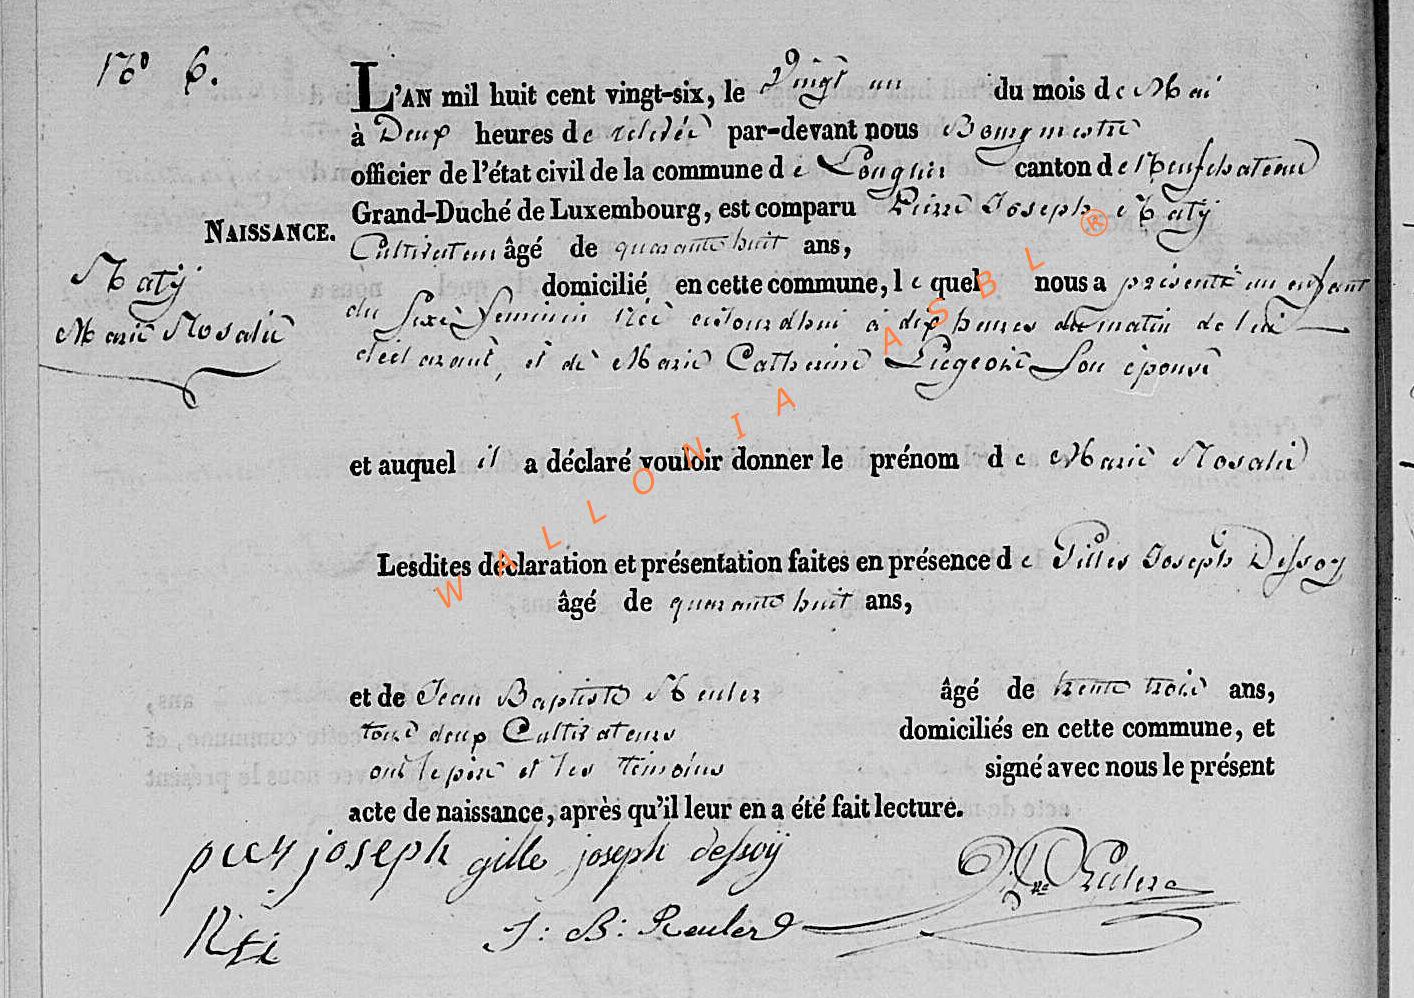 N° 6.
L'AN mil huit cent vingt-six, le Vingt un du mois de Mai
à Deux heures de relevée par-devant nous Bourgmestre
officier de l'état civil de la commune de Longlier canton de Neufchateau
Grand-Duché de Luxembourg, est comparu Pierre Joseph Maty
NAISSANCE.
Cultivateur âgé de quarante huit ans,
Maty
Marie Rosalie
domicilié en cette commune, lequel nous a présenté un enfant
du sexe feminin née aujourdhui à dix heures du matin de lui
déclarant, et de Marie Catherine Liegeois son épouse
et auquel il a déclaré vouloir donner le prénom de Marie Rosalie
Lesdites déclaration et présentation faites en présence de Gilles Joseph Dessoy
âgé de quarante huit ans,
et de Jean Baptiste Reuler âgé de trente trois ans,
tous deux Cultivateurs domiciliés en cette commune, et
ont le père et les témoins signé avec nous le présent
acte de naissance, après qu'il leur en a été fait lecture.
pier joseph gille joseph dessoy
J: B: Reuler
WALLONIA ASBL ®